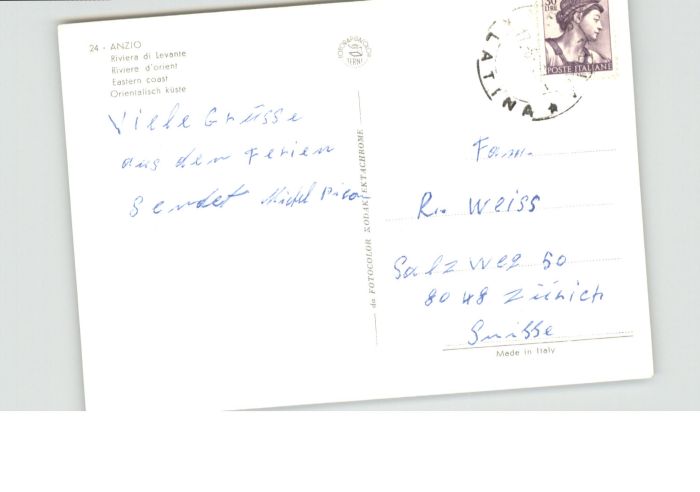 24 - ANZIO
Riviera di Levante
Riviere d'orient
Eastern coast
Orientalisch küste
Viele Grüsse
aus den Ferien
sendet Michel
da FOTOCOLOR KODAK EKTACHROME
50
LIRE
POSTE ITALIANE
LATINA
Fam.
R. Weiss
Salzweg 50
8048 Zürich
Suisse
Made in Italy